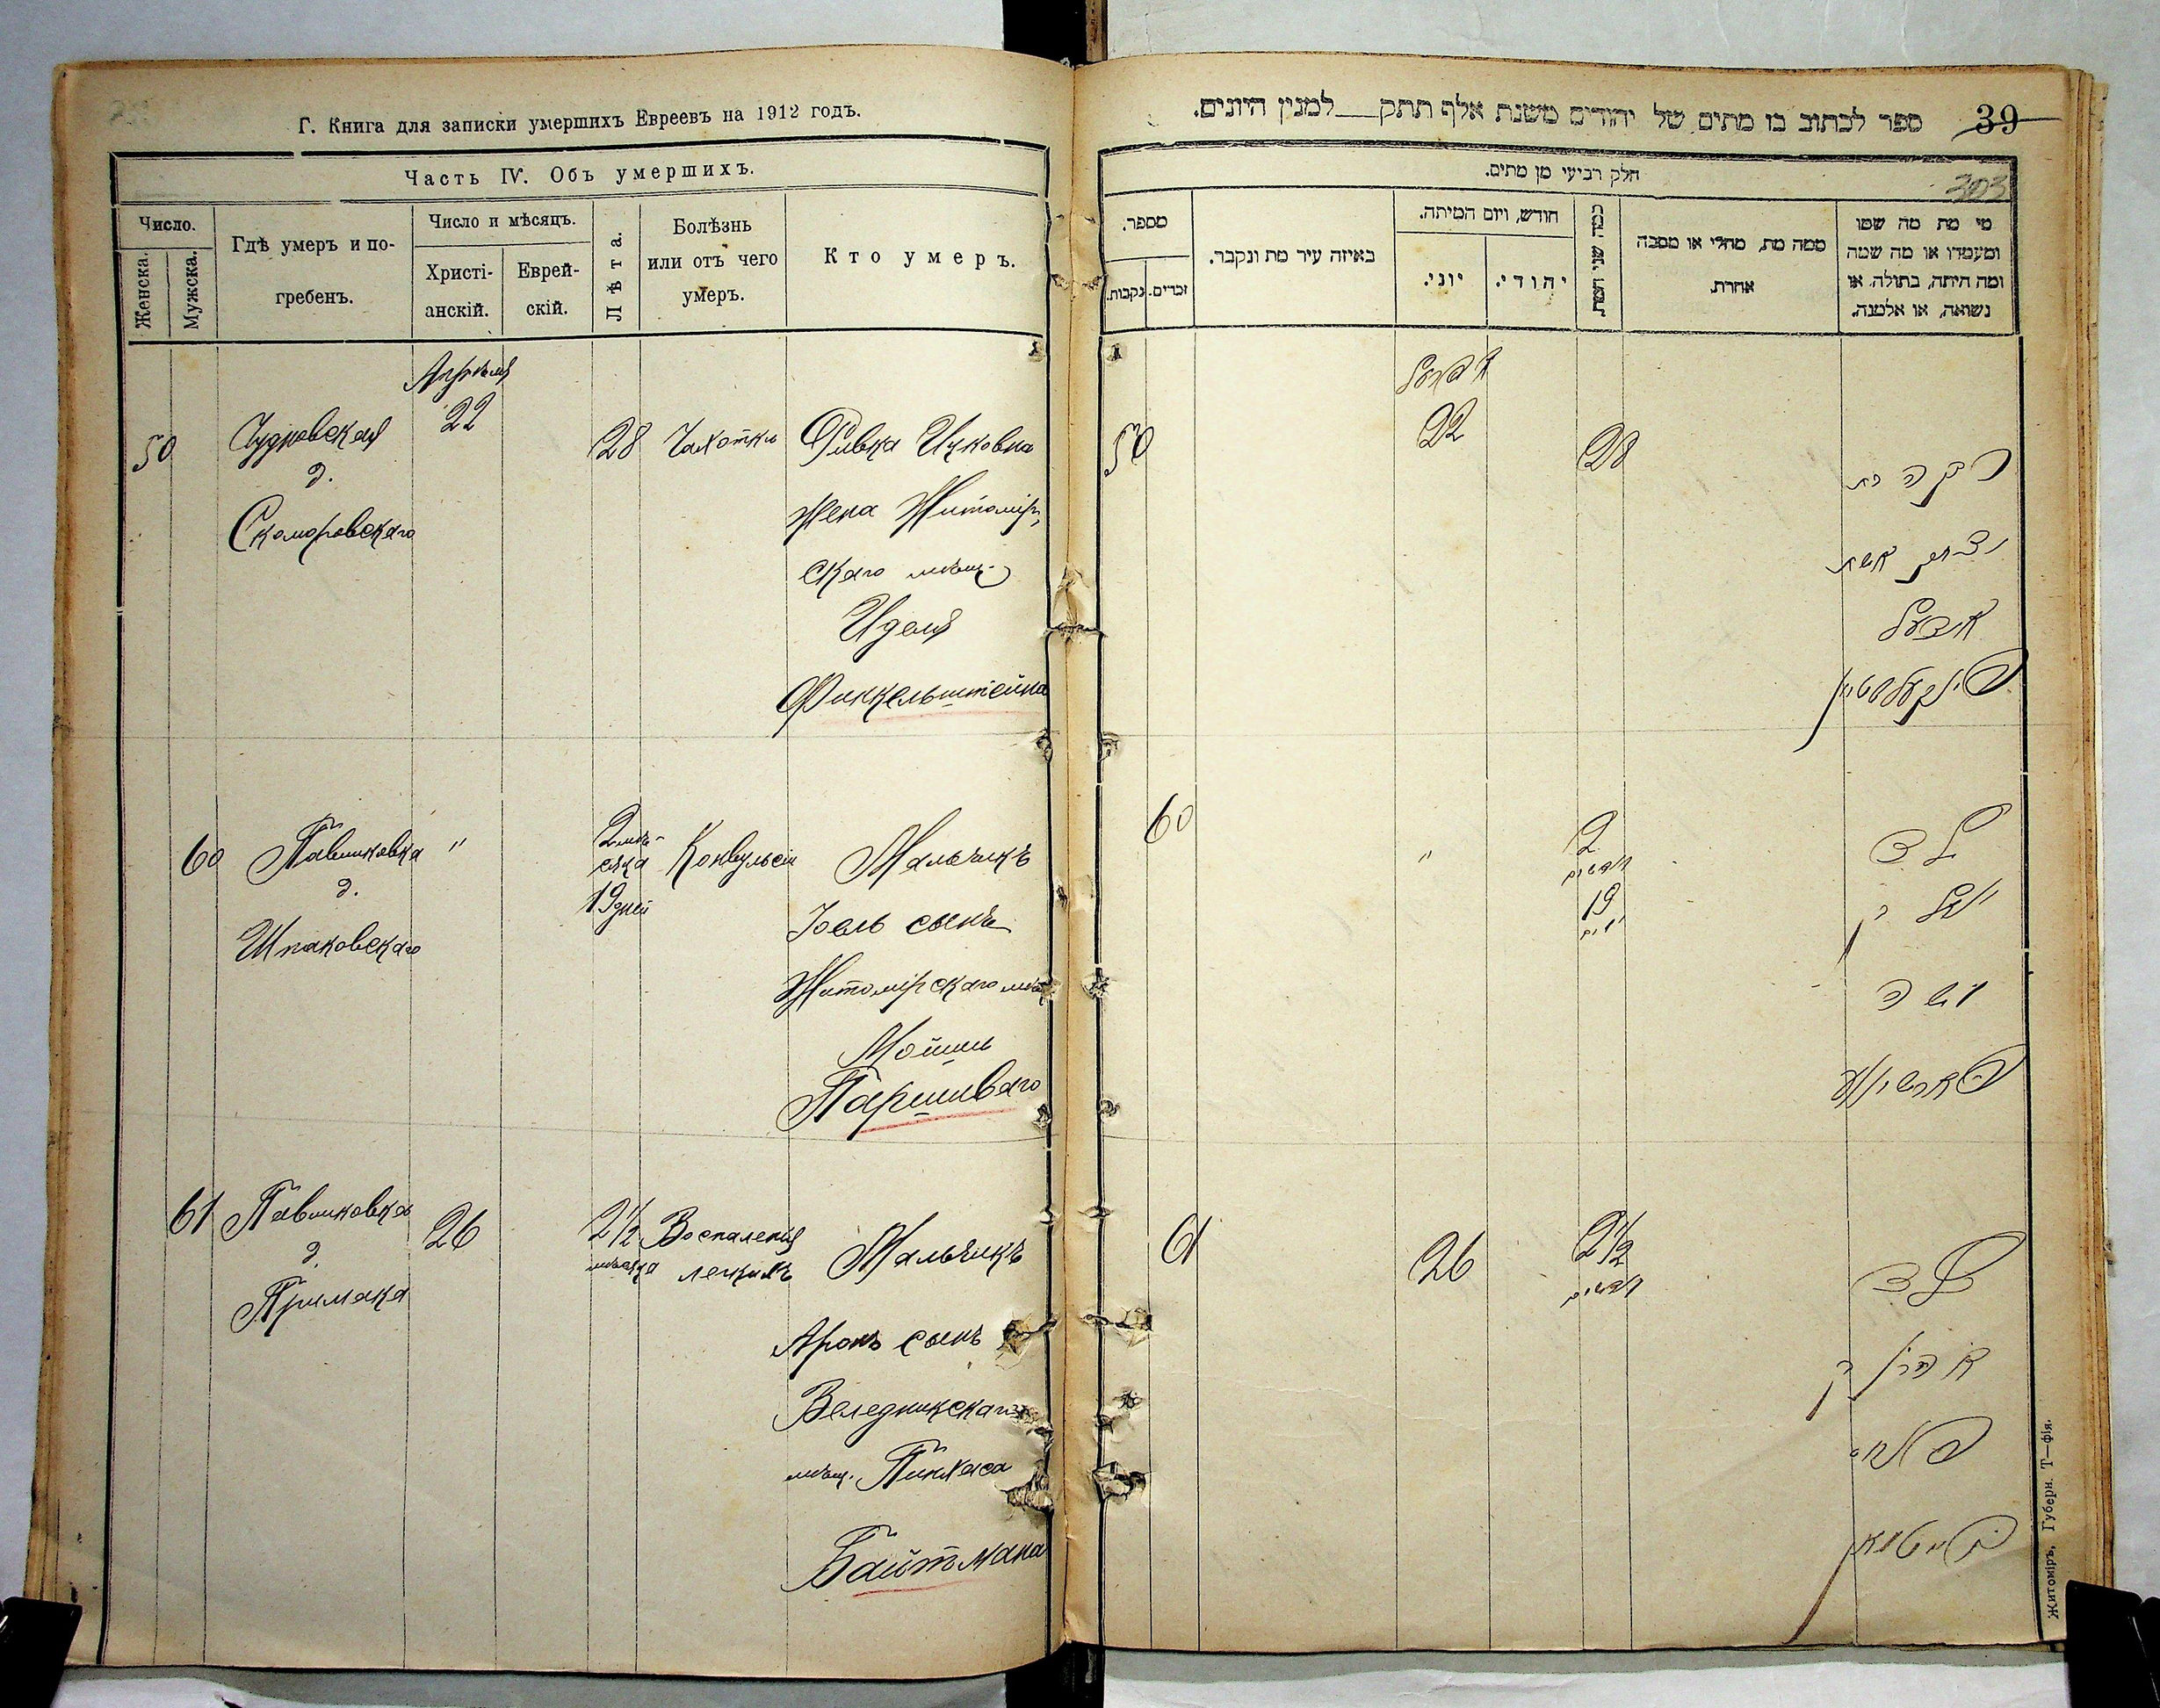 Г. Книга для записки умершихъ Евреевъ на 1912 годъ.
Часть IV. Объ умершихъ.
Число.
Женска.
Мужска.
Гдѣ умеръ и по-
гребенъ.
Число и мѣсяцъ.
Христі-
анскій.
Еврей-
скій.
Лѣта.
Болѣзнь
или отъ чего
умеръ.
Кто умеръ.
Апрѣля
50
Чудновская
д.
Скоморовскаго
22
28
Чахотка
Ривка Ицковна
жена Житомір-
скаго мѣщ.
Иделя
Финкельштейна
60
Павликовка
д.
Шпаковскаго
"
2 мѣ-
сяца
19 дней
Конвульсіи
Мальчикъ
Іоель сынъ
Житомірскаго мѣщ
Мошки
Паршиваго
61
Павликовка
д.
Примака
26
2½
мѣсяца
Воспаленія
легкихъ
Мальчикъ
Аронъ сынъ
Веледникскаго
мѣщ. Пинхаса
Байтмана
ספר לכתוב בו מתים של יהודים משנת אלף תתק למנין היונים.
39
303
חלק רביעי מן מתים.
מספר.
נקבות.
זכרים.
באיזה עיר מת ונקבר.
חודש, ויום המיתה.
יוני.
יהודי.
כמה שני המת.
ממה מת, מחלי או מסבה
אחרת.
מי מת מה שמו
ומעמדו או מה שמה
ומה היתה, בתולה או
נשואה, או אלמנה.
אפריל
50
22
28
רבקה בת
אשת
פינקעלשטיין
60
"
2
חדשים
19
ימים
ילד
יואל בן
משה
61
26
2½
חדשים
ילד
אהרן בן
פנחס